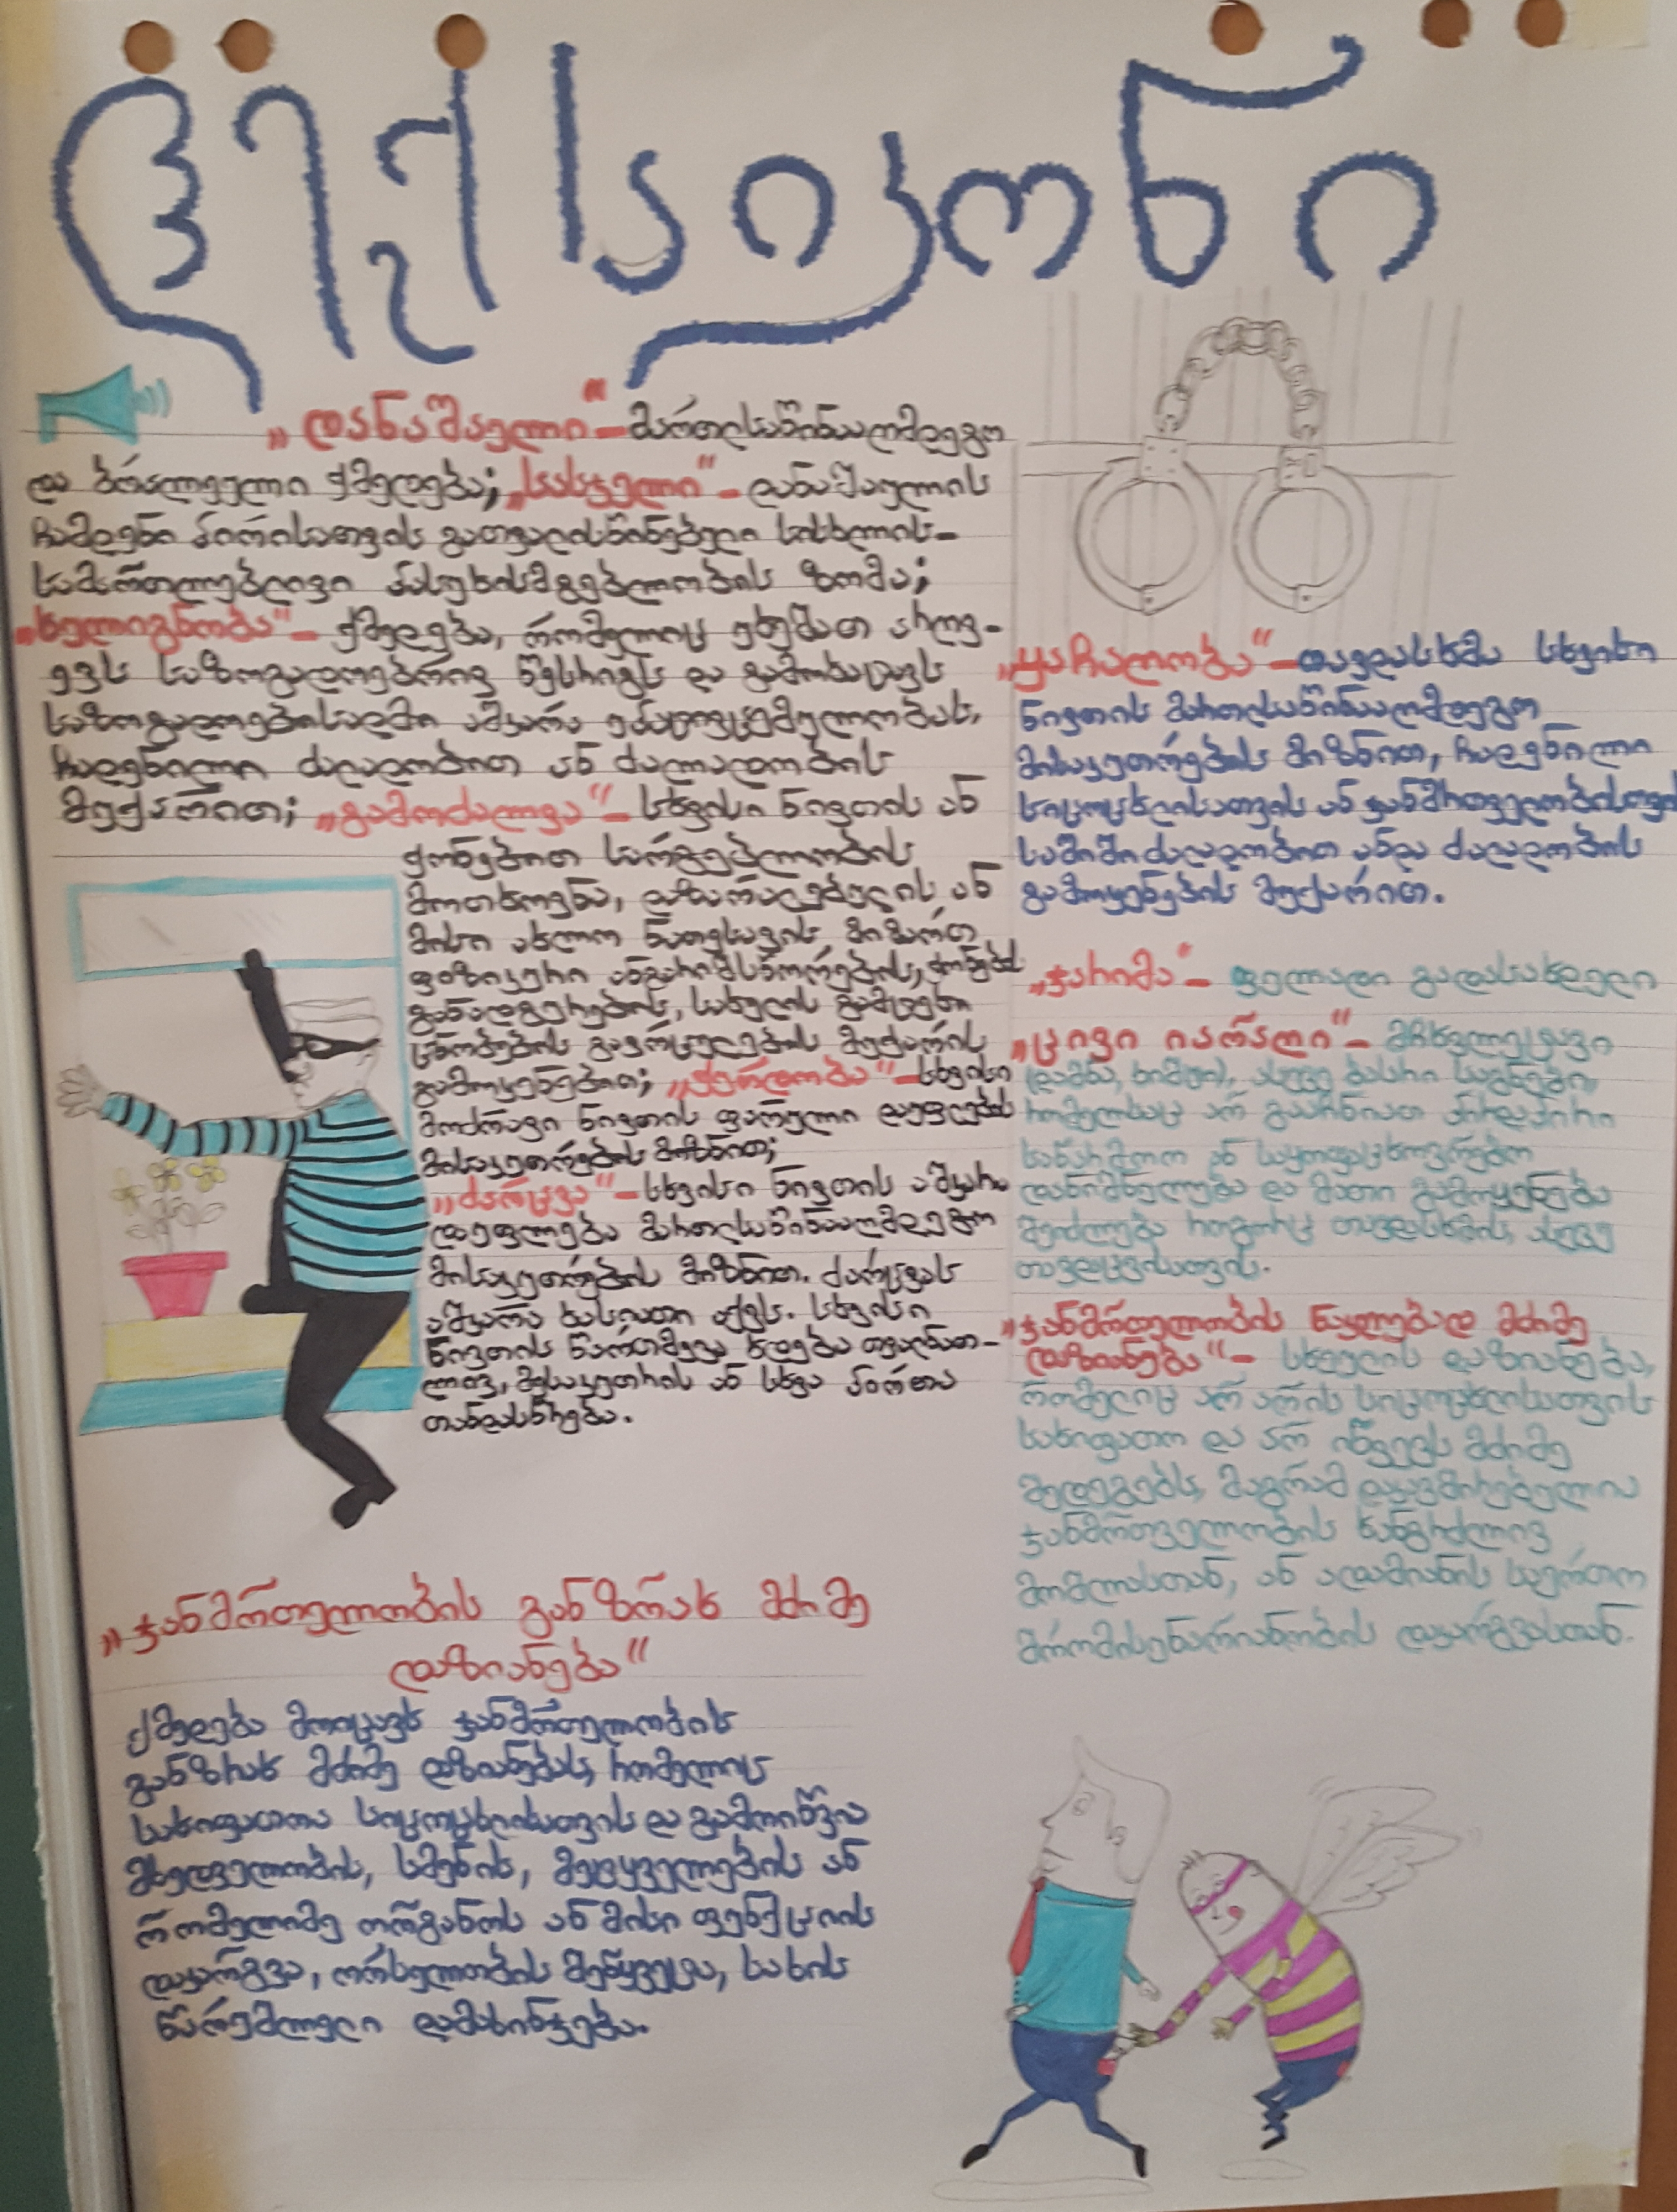 ლექსიკონი
„დანაშაული“ – მართლსაწინააღმდეგო
და ბრალეული ქმედება; „სასჯელი“ – დანაშაულის
ჩამდენი პირისათვის გათვალისწინებული სისხლის-
სამართლებლივი პასუხისმგებლობის ზომა;
„ხულიგნობა“ – ქმედება, რომელიც უხეშათ არღვ-
ევს საზოგადოებრივ წესრიგს და გამოხატავს
საზოგადოებისადმი აშკარა უპატივცემულობას,
ჩადენილი ძალადობით ან ძალადობის
მუქარით; „გამოძალვა“ – სხვისი ნივთის ან
ქონებით სარგებლობის
მოთხოვნა, დაზარალებულის ან
მისი ახლო ნათესავის მიმართ
ფიზიკური ანგარიშსწორების, ქონების
განადგურების, სახელის გამტეხი
ცნობების გავრცელების მუქარის
გამოყენებით; „ქურდობა“ – სხვისი
მოძრავი ნივთის ფარული დაუფლება
მისაკუთრების მიზნით;
„ძარცვა“ – სხვისი ნივთის აშკარა
დაუფლება მართლსაწინააღმდეგო
მისაკუთრების მიზნით. ძარცვას
აშკარა ხასიათი აქვს. სხვისი
ნივთის წართმევა ხდება თვალნათ-
ლივ, მესაკუთრის ან სხვა პირთა
თანდასწრება.
„ჯანმრთელობის განზრახ მძიმე
დაზიანება“
ქმედება მოიცავს ჯანმრთელობის
განზრახ მძიმე დაზიანებას, რომელიც
სახიფათოა სიცოცხლისათვის და გამოიწვია
მხედველობის, სმენის, მეტყველების ან
რომელიმე ორგანოს ან მისი ფუნქციის
დაკარგვა, ორსულობის შეწყვეტა, სახის
წარუშლელი დამახინჯება.
„ყაჩაღობა“ – თავდასხმა სხვისი
ნივთის მართლსაწინააღმდეგო
მისაკუთრების მიზნით, ჩადენილი
სიცოცხლისათვის ან ჯანმრთელობისთვის
საშიში ძალადობით ანდა ძალადობის
გამოყენების მუქარით.
„ჯარიმა“ – ფულადი გადასახდელი
„ცივი იარაღი“ – მჩხვლეტავი
(დანა, ხიშტი), ასევე ბასრი საგნები,
რომელსაც არ გააჩნიათ პირდაპირი
საწარმოო ან საყოფაცხოვრებო
დანიშნულება და მათი გამოყენება
შეიძლება როგორც თავდასხმის, ასევე
თავდაცვისათვის.
„ჯანმრთელობის ნაკლებად მძიმე
დაზიანება“ – სხეულის დაზიანება,
რომელიც არ არის სიცოცხლისათვის
სახიფათო და არ იწვევს მძიმე
შედეგებს, მაგრამ დაკავშირებულია
ჯანმრთელობის ხანგრძლივ
მოშლასთან, ან ადამიანის საერთო
შრომისუნარიანობის დაკარგვასთან.